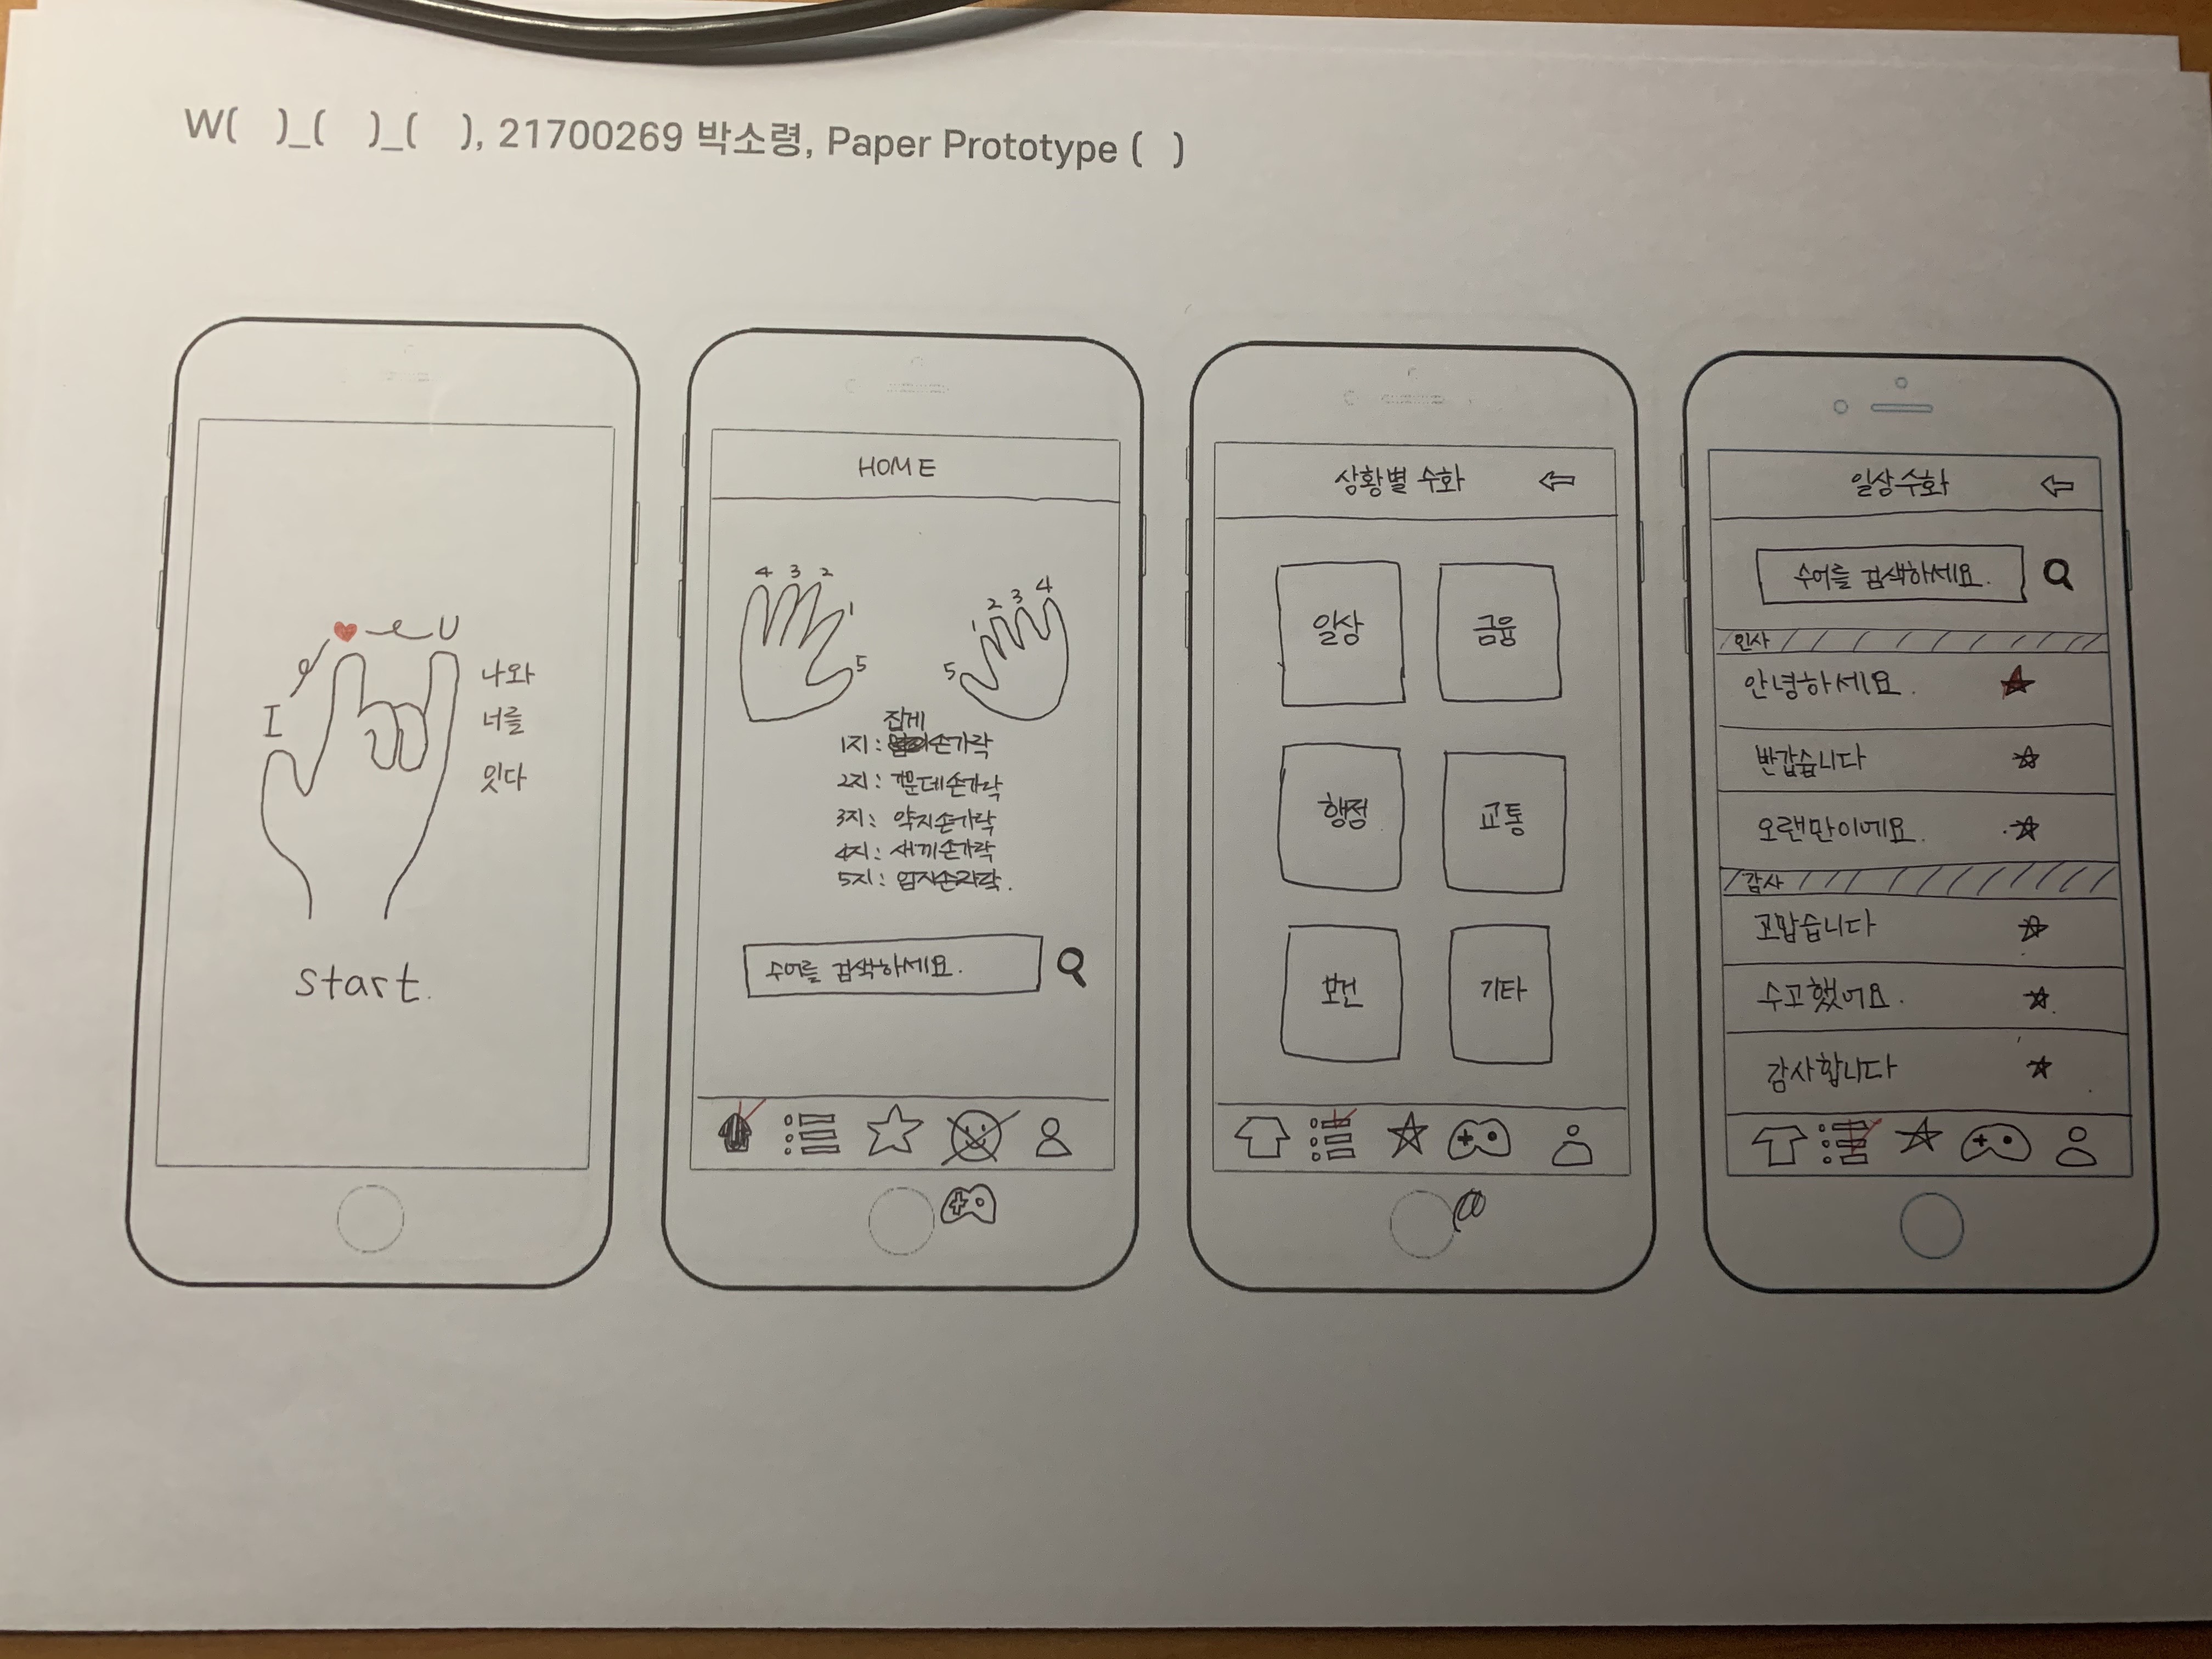 W(   )_(   )_(   ), 21700269 박소령, Paper Prototype (   )
I ♥ U
나와
너를
잇다
start.
HOME
4 3 2 1 5
5 1 2 3 4
집게
1지: 손가락
2지: 가운데손가락
3지: 약지손가락
4지: 새끼손가락
5지: 엄지손가락.
수어를 검색하세요.
상황별 수화
일상
금융
행정
교통
보건
기타
일상수화
수어를 검색하세요.
인사
안녕하세요.
반갑습니다
오랜만이에요.
감사
고맙습니다
수고했어요.
감사합니다